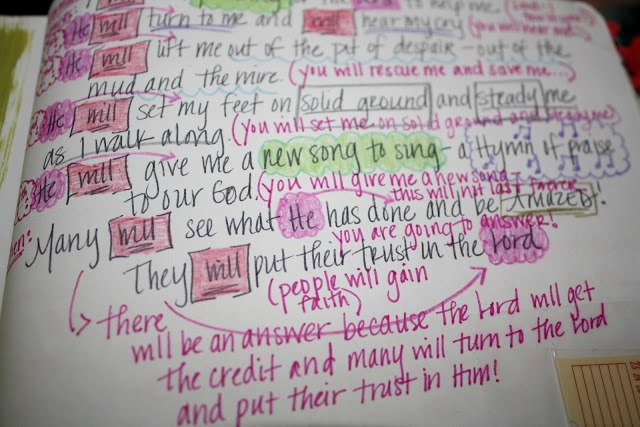 to help me
He will turn to me and will hear my cry (you will hear me)
He will lift me out of the pit of despair - out of the
mud and the mire. (you will rescue me and save me...)
He will set my feet on solid ground and steady me
as I walk along. (you will set me on solid ground and steady me)
He will give me a new song to sing - a Hymn of praise
to our God. (you will give me a new song -
this will not last forever
Many will see what He has done and be Amazed!
you are going to answer!
They will put their trust in the Lord
(people will gain
faith)
> there
will be an answer because the Lord will get
the credit and many will turn to the Lord
and put their trust in Him!